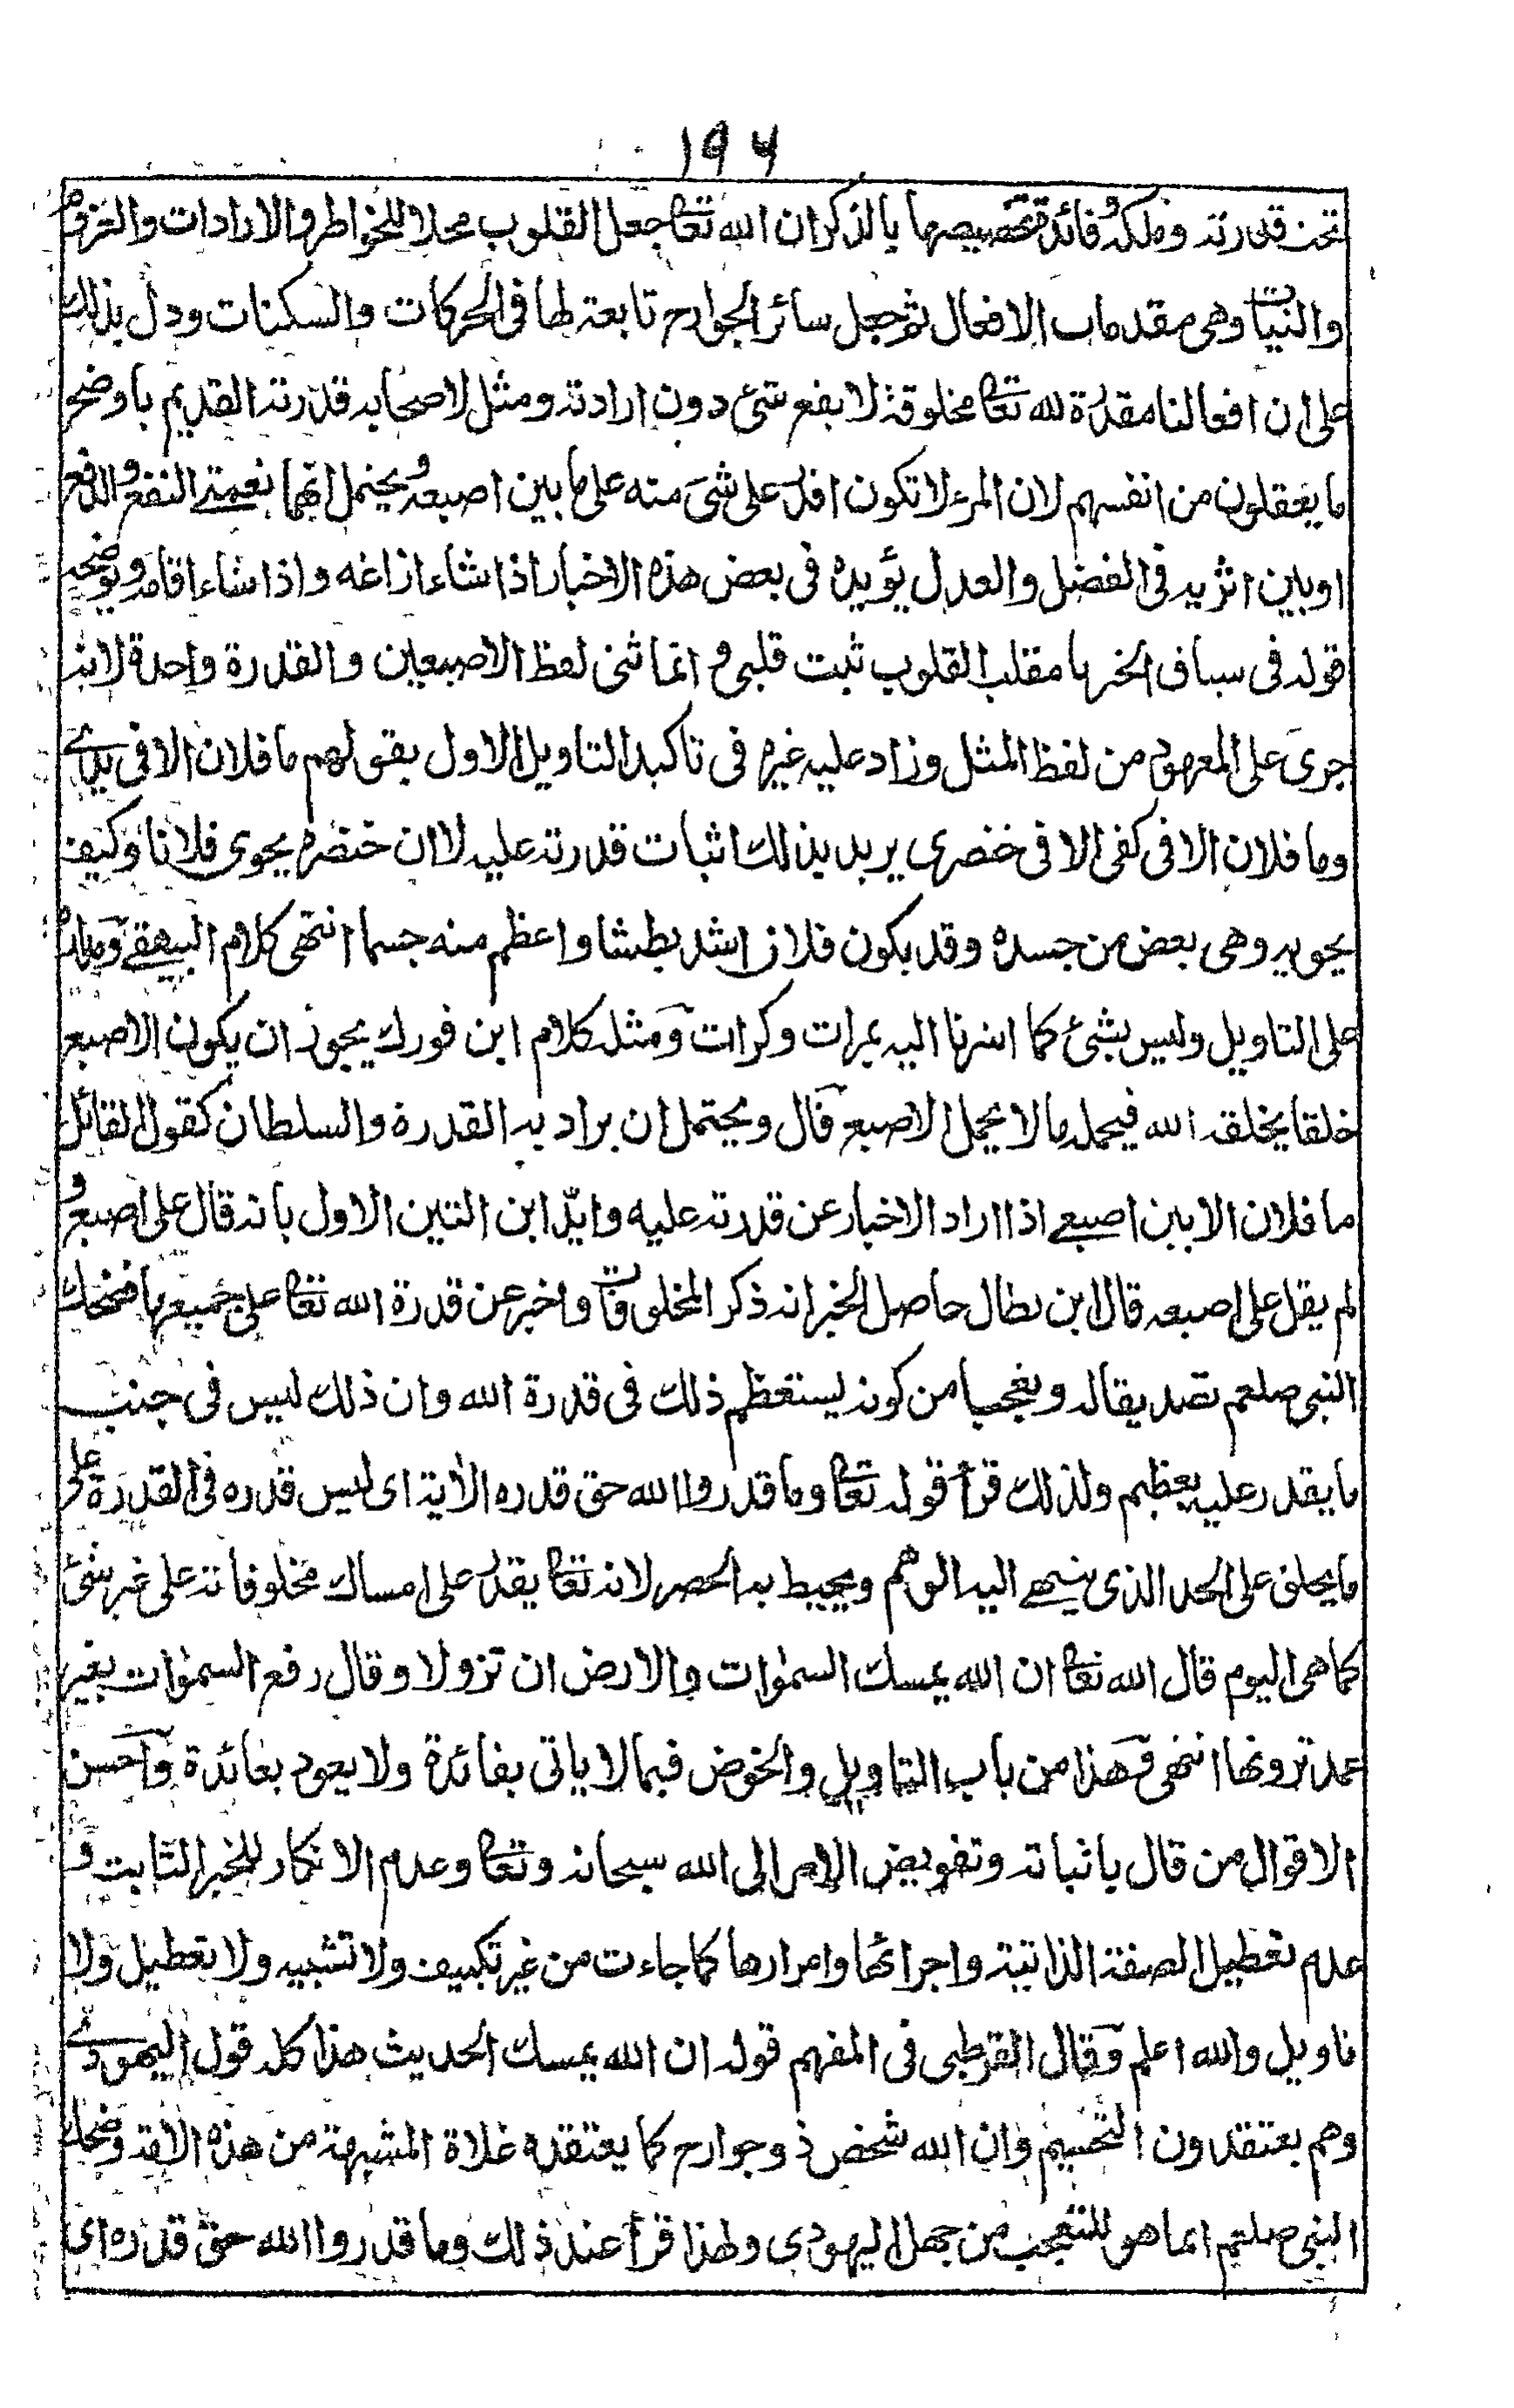 ١٩٦
تحت قدرته وملكه وفائدة تخصيصها بالذكر ان الله تعا جعل القلوب محلا للخواطر والارادات والعزوم
والنيات وهى مقدمات الافعال ثم جعل سائر الجوارح تابعة لها فى الحركات والسكنات ودل بذلك
على ان افعالنا مقدرة لله تعا مخلوقة لا يقع شئ دون ارادته ومثل لاصحابه قدرته القديم باوضح
ما يعقلون من انفسهم لان المرء لا تكون اقدر على شئ منه على ما بين اصبعه ويحتمل انها نعمتے النفع والدفع
او بين اثريه فى الفضل والعدل يؤيده فى بعض هذه الاخبار اذا شاء ازاغه واذا شاء اقامه ويوضحه
قوله فى سياق الخبر يا مقلب القلوب ثبت قلبى و انما ثنى لفظ الاصبعين والقدرة واحدة لانه
جرى على المعهود من لفظ المثل وزاد عليه غيره فى تاكيد التاويل الاول بقولهم ما فلان الا فى يدے
وما فلان الا فى كفى الا فى خنصرى يريد بذلك اثبات قدرته عليه لا ان خنصره يحوى فلانا وكيف
يحويه وهى بعض من جسده وقد يكون فلان اشد بطشا واعظم منه جسما انتهى كلام البيهقے
على التاويل وليس بشئ كما اشرنا اليه بمرات وكرات ومثله كلام ابن فورك يجوز ان يكون الاصبع
خلقا يخلقه الله فيحمله ما لا يحمل الاصبع قال ويحتمل ان يراد به القدرة والسلطان كقول القائل
ما فلان الا بين اصبعے اذا اراد الاخبار عن قدرته عليه وايّد ابن التين الاول بانه قال على اصبع و
لم يقل على اصبعه قال ابن بطال حاصل الخبر انه ذكر المخلوقات واخبر عن قدرة الله تعا على جميعها فضحك
النبى صلعم تصديقا له وتعجبا من كونه يستعظم ذلك فى قدرة الله وان ذلك ليس فى جنب
ما يقدر عليه بعظيم ولذلك قرأ قوله تعا وما قدروا الله حق قدره الاية اى ليس قدره فى القدرة على
ما يخلق على الحد الذى ينتهے اليه الوهم ويحيط به الحصر لانه تعا يقدر على امساك مخلوقاته على غير شئ
كما هى اليوم قال الله تعا ان الله يمسك السموات والارض ان تزولا وقال رفع السموات بغير
عمد ترونها انتهى وهذا من باب التاويل والخوض فيما لا ياتى بفائدة ولا يعود بعائدة واحسن
الاقوال من قال باثباته وتفويض الامر الى الله سبحانه وتعا وعدم الانكار للخبر الثابت و
عدم تعطيل الصفة الذاتية واجرائها وامرارها كما جاءت من غير تكييف ولا تشبيه ولا تعطيل ولا
تاويل والله اعلم وقال القرطبى فى المفهم قوله ان الله يمسك الحديث هذا كله قول اليهودے
وهم يعتقدون التجسيم وان الله شخص ذو جوارح كما يعتقده غلاة المشبهة من هذه الامة وضحك
النبى صلعم انما هو للتعجب من جهل اليهودى ولهذا قرأ عند ذلك وما قدروا الله حق قدره اى